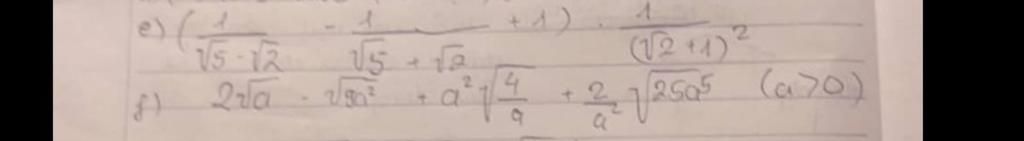 e) (1/(√5 - √2) - 1/(√5 + √2) + 1) · 1/(√2 + 1)²
f) 2√a - √9a² + a²√(4/a) + 2/a² √25a⁵ (a > 0)